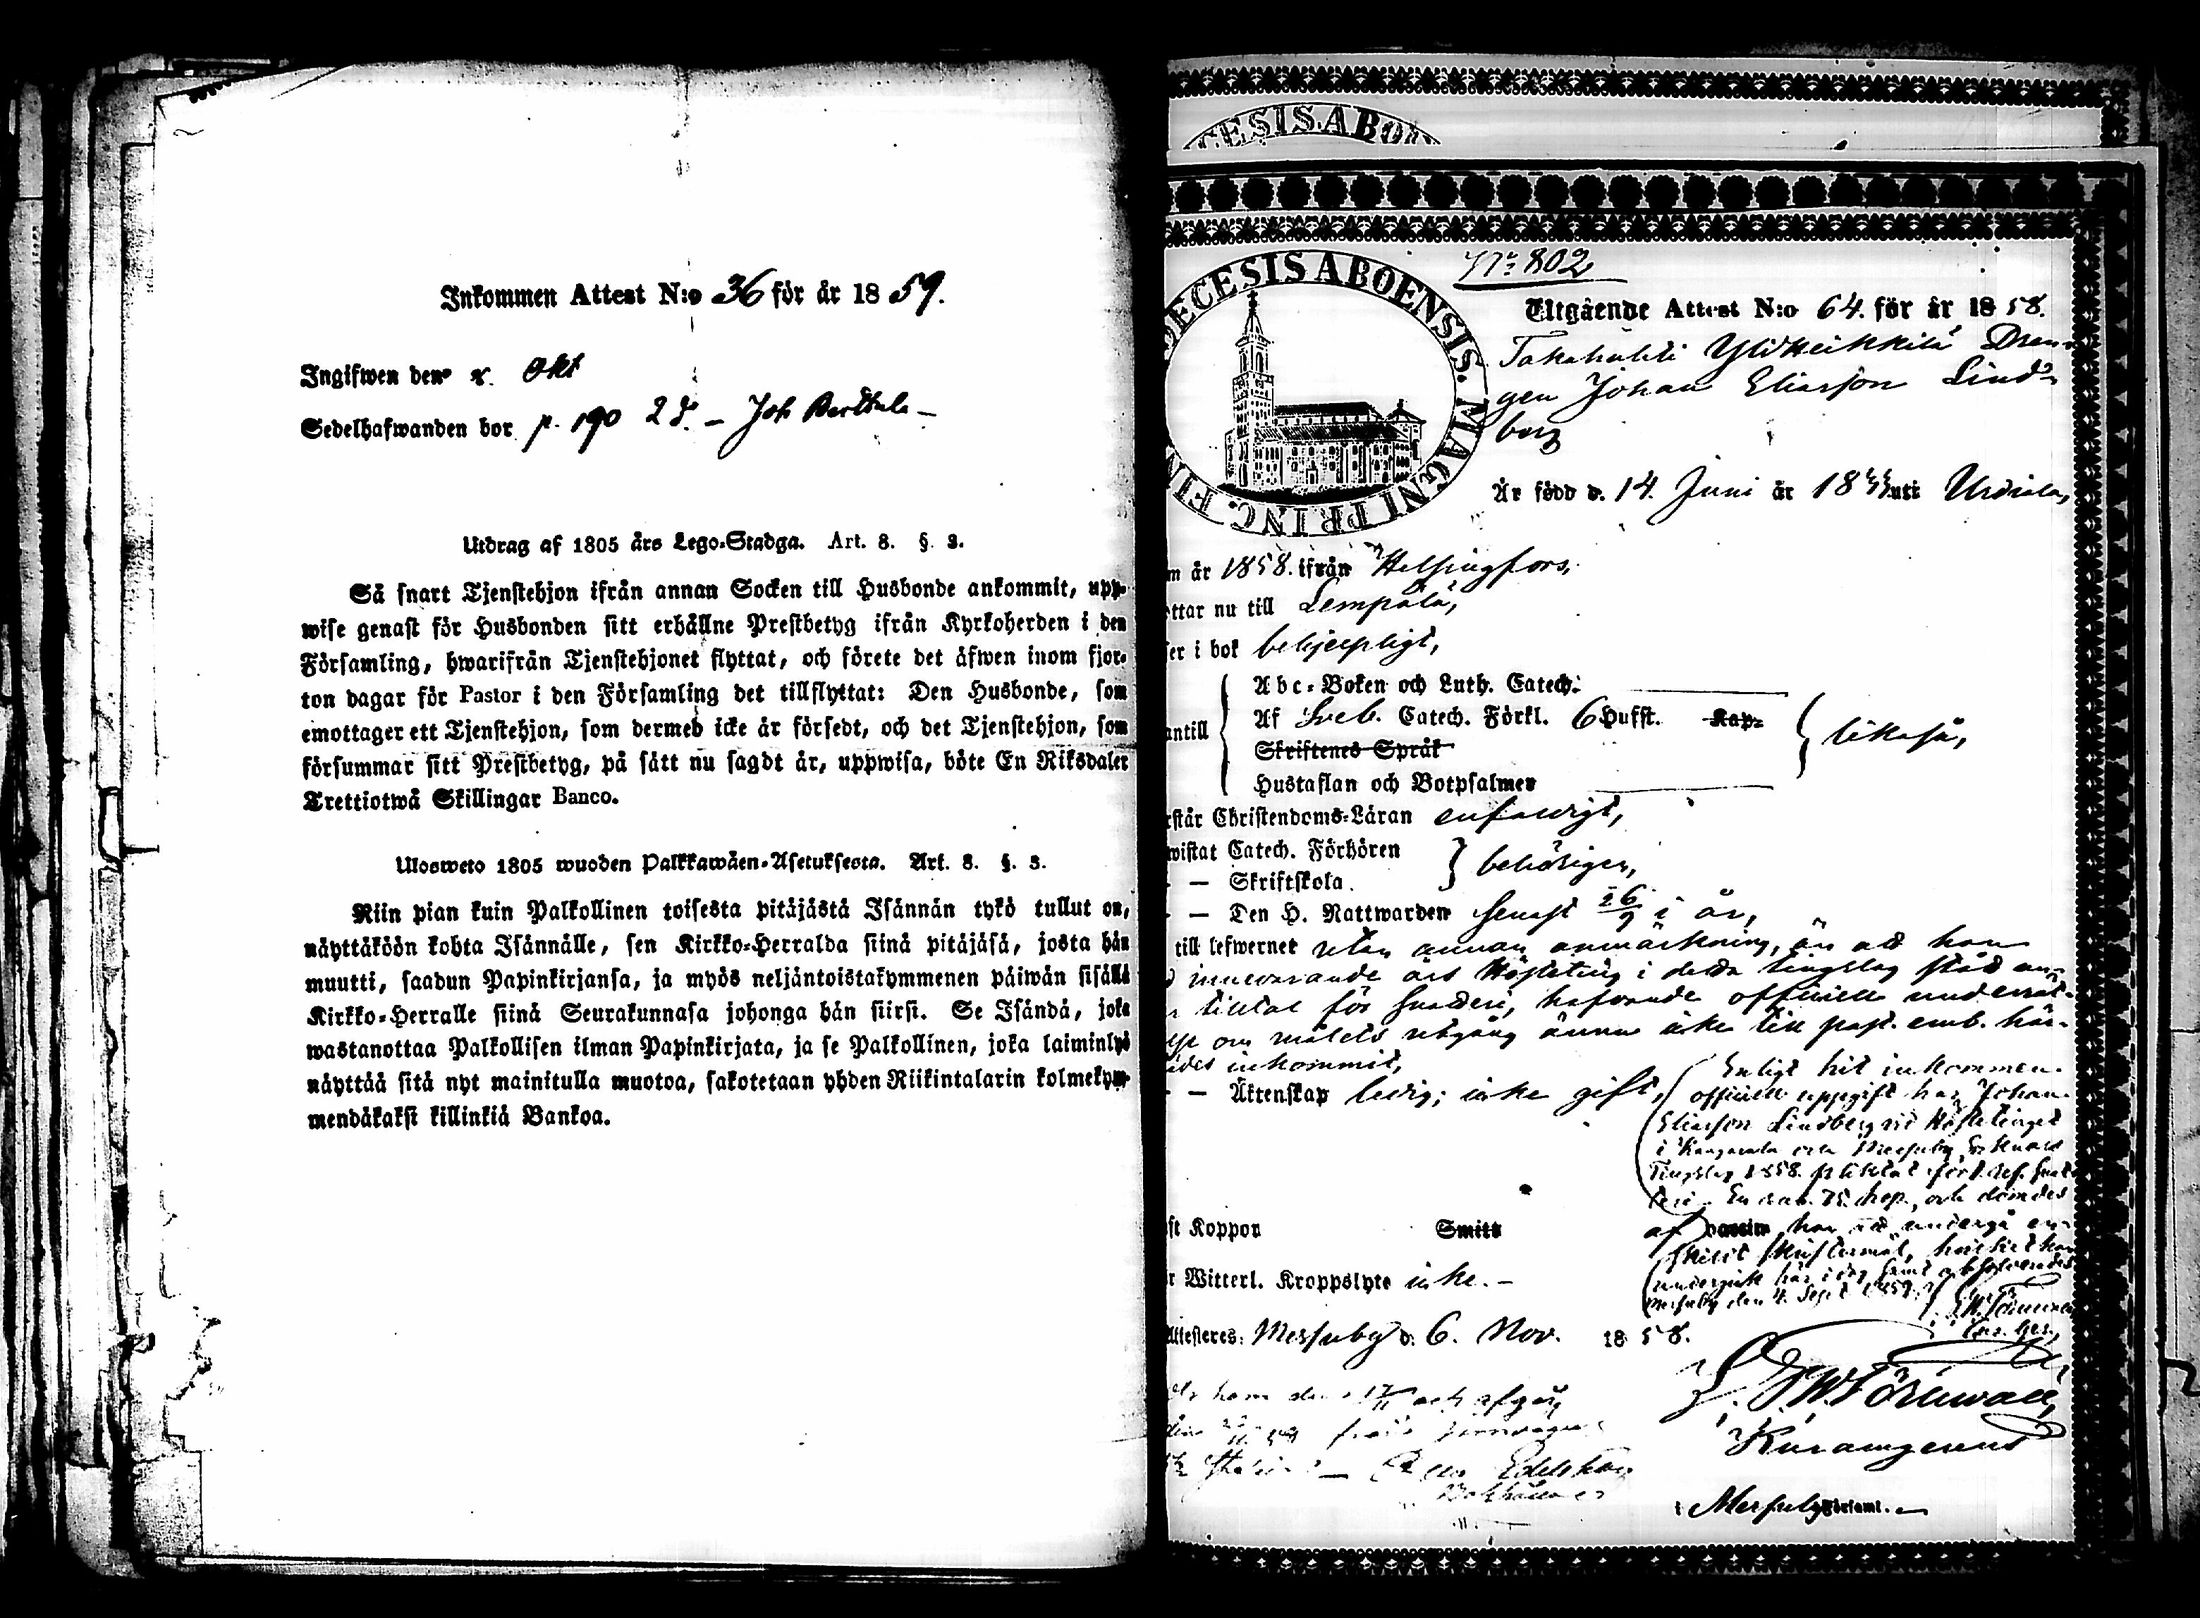 Inkommen Attest N:o 36 för år 1859.
Ingifwen den Okt
Sedelhafwanden bor p. 190 2 d. – Joh
Utdrag af 1805 års Lego-Stadga. Art. 8. §. 3.
Så snart Tjenstehjon ifrån annan Socken till Husbonde ankommit, upp-
wise genast för Husbonden sitt erhållne Prestbetyg ifrån Kyrkoherden i den
Församling, hwarifrån Tjenstehjonet flyttat, och förete det äfwen inom fjor-
ton dagar för Pastor i den Församling det tillflyttat: Den Husbonde, som
emottager ett Tjenstehjon, som dermed icke är försedt, och det Tjenstehjon, som
försummar sitt Prestbetyg, på sätt nu sagdt är, uppwisa, böte En Riksdaler
Trettiotwå Skillingar Banco.
Ulosweto 1805 wuoden Palkkawäen-Asetuksesta. Art. 8. §. 3.
Niin pian kuin Palkollinen toisesta pitäjästä Isännän tykö tullut on,
näyttäköön kohta Isännälle, sen Kirkko-Herralda siinä pitäjäsä, josta hän
muutti, saadun Papinkirjansa, ja myös neljäntoistakymmenen päiwän sisällä
Kirkko-Herralle siinä Seurakunnasa johonga hän siirsi. Se Isändä, joka
wastanottaa Palkollisen ilman Papinkirjata, ja se Palkollinen, joka laiminlyö
näyttää sitä nyt mainitulla muotoa, sakotetaan yhden Riikintalarin kolmekym-
mendäkaksi killinkiä Bankoa.
CESIS.ABO
DECESIS ABOENSIS. MAGNI PRINC. FIN
N:o 802
Utgående Attest N:o 64. för år 1858.
Takahuhti Yliheikkilä Dren-
gen Johan Eliasson Lind-
berg
Är född d. 14. Juni år 1844 uti Urdiala,
m år 1858. ifrån Helsingfors,
ttar nu till Lempälä,
ser i bok behjelpligt,
Abc-Boken och Luth. Catech.
antill Af Sveb. Catech. Förkl. 6 Hufst. Kap. likaså,
Skriftenes Språk
Hustaflan och Botpsalmer
rstår Christendoms-Läran enfaldigt,
wistat Catech. Förhören behörigen,
– – Skriftskola
– – Den H. Nattwarden senast 26/9 i år,
till lefwernet utan annan anmärkning, än att han
innevarande års Hösteting i detta tingslag stod an-
tiltal för snatteri, hafvande officiell underrät-
else om målets utgång ännu icke till past. emb. här-
städes inkommit,
– – Äktenskap ledig; icke gift,
Enligt hit inkommen
officiell uppgift har Johan
Eliasson Lindberg vid Höstetinget
i Kangasala och Messuby
Tingslag 1858. pliktat för snat-
teri En rub. 75 kop., och dömdes
af han att undergå en-
skildt skriftermål, hvilket han
undergick här i dag
Messuby den 4. Sept 1859.
st Koppor Smitt
r Witterl. Kroppslyte icke. –
Attesteres: Messuby d. 6. Nov. 1858.
J. W. Törnwall,
Messuby Församl. –